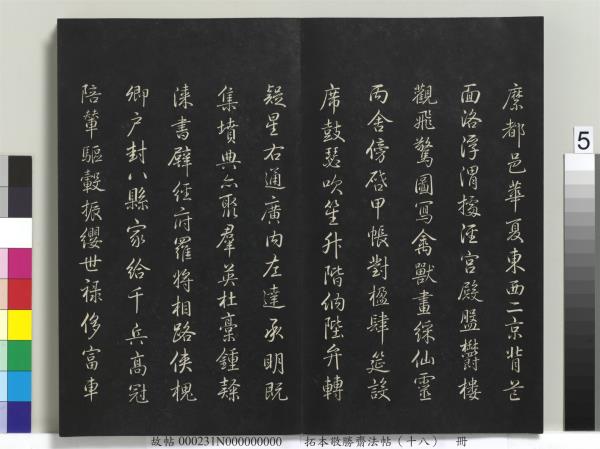 縻都邑華夏東西二京背芒
面洛浮渭據涇宮殿盤欝樓
觀飛驚圖寫禽獸畫綵仙靈
丙舍傍啓甲帳對楹肆筵設
席鼓瑟吹笙升階納陛弁轉
疑星右通廣內左達承明既
集墳典亦聚群英杜稾鍾隸
漆書壁經府羅將相路俠槐
卿户封八縣家給千兵高冠
陪輦驅轂振纓世禄侈富車
5
故帖 000231N000000000 拓本敬勝齋法帖（十八） 冊